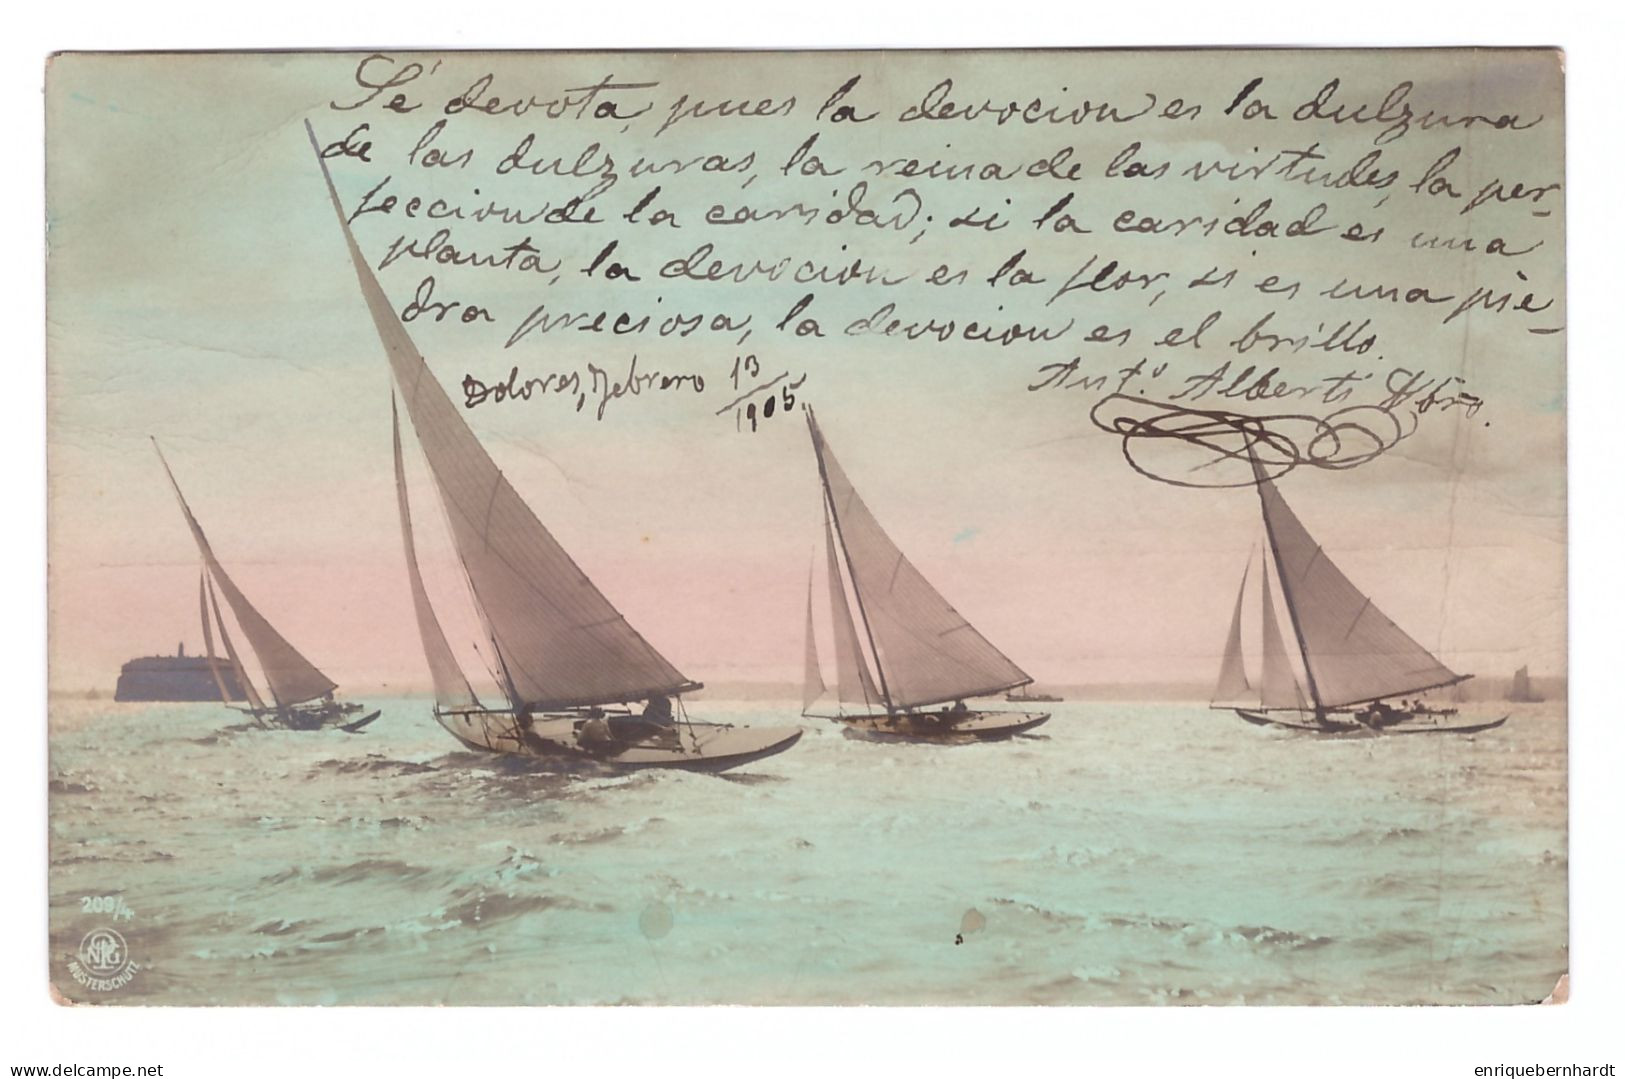 Sé devota, pues la devocion es la dulzura
de las dulzuras, la reina de las virtudes, la per-
feccion de la caridad; si la caridad es una
planta, la devocion es la flor, si es una pie-
dra preciosa, la devocion es el brillo.
Dolores, Febrero 13/1905.
Ant.º Alberti
209/4
NPG
MUSTERSCHUTZ
delcampe.net
enriquebernhardt